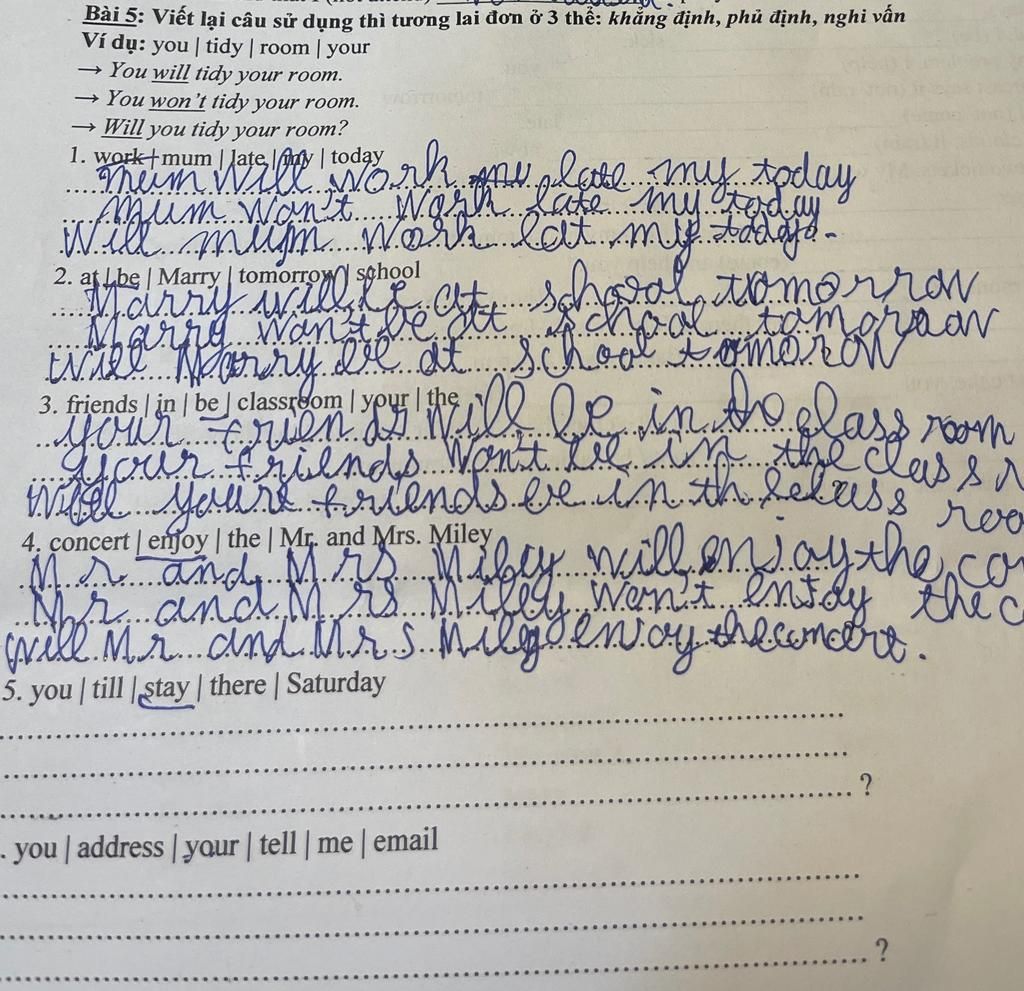 Bài 5: Viết lại câu sử dụng thì tương lai đơn ở 3 thể: khẳng định, phủ định, nghi vấn
Ví dụ: you | tidy | room | your
→ You will tidy your room.
→ You won't tidy your room.
→ Will you tidy your room?
1. work | mum | late | my | today
mum will work late my today
mum won't work late my today
will mum work lat my today.
2. at | be | Marry | tomorrow | school
Marry will be at school tomorrow
Marry won't be at school
will Marry be at school tomorow
3. friends | in | be | classroom | your | the
your friends will be in the class room
your friends won't be in the class r
will your friends be in the class roo
4. concert | enjoy | the | Mr. and Mrs. Miley
Mr and Mrs Miley will enjoy the co
Mr and Mrs Miley won't enjoy the c
will Mr and Mrs Miley enjoy the concert.
5. you | till | stay | there | Saturday
?
. you | address | your | tell | me | email
?